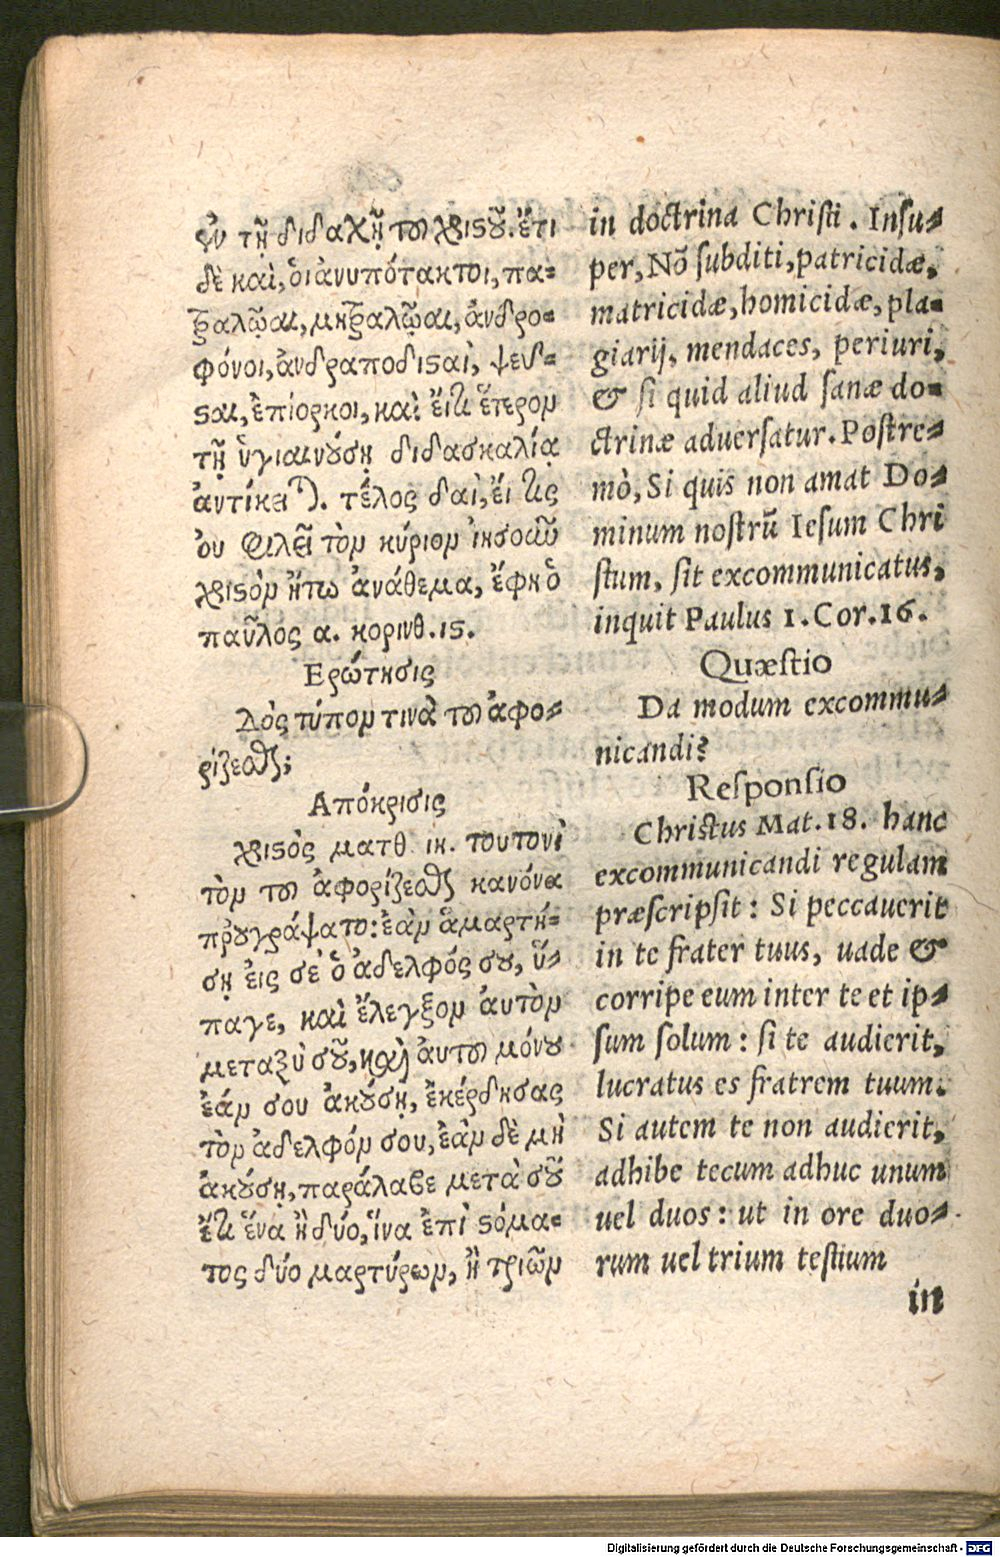 ἐν τῇ διδαχῇ τοῦ χριστοῦ. ἔτι
δὲ καὶ, ὁι ἀνυπότακτοι, πα-
τραλῷαι, μητραλῷαι, ἀνδρο-
φόνοι, ἀνδραποδισταὶ, ψεῦ-
σται, ἐπίορκοι, καὶ ἔιτι ἕτερον
τῇ ὑγιαινούσῃ διδασκαλίᾳ
ἀντίκειται. τέλος δαὶ, ἔι τις
ὀυ φιλεῖ τὸν κύριον ἰησοῦν
χριστὸν ἤτω ἀνάθεμα, ἔφη ὁ
παῦλος α. κορινθ. ις.
Ερώτησις
Δὸς τύπον τινὰ τοῦ ἀφο-
ρίζεσθαι;
Απόκρισις
χριστὸς ματθ. ιη. τουτονὶ
τὸν τοῦ ἀφορίζεσθαι κανόνα
προυγράψατο: ἐὰν ἁμαρτή-
σῃ ἐις σὲ ὁ ἀδελφός σου, ὕ-
παγε, καὶ ἔλεγξον ἀυτὸν
μεταξὺ σοῦ, καὶ ἀυτοῦ μόνου
ἐάν σου ἀκούσῃ, ἐκέρδησας
τὸν ἀδελφόν σου, ἐὰν δὲ μὴ
ἀκούσῃ, παράλαβε μετὰ σοῦ
ἔτι ἕνα ἢ δύο, ἵνα ἐπὶ στόμα-
τος δύο μαρτύρων, ἢ τριῶν
in doctrina Christi. Insu-
per, Nō subditi, patricidæ,
matricidæ, homicidæ, pla-
giarij, mendaces, periuri,
& si quid aliud sanæ do-
ctrinæ aduersatur. Postre-
mò, Si quis non amat Do-
minum nostrū Iesum Chri
stum, sit excommunicatus,
inquit Paulus 1. Cor. 16.
Quæstio
Da modum excommu-
nicandi?
Responsio
Christus Mat. 18. hanc
excommunicandi regulam
præscripsit: Si peccauerit
in te frater tuus, uade &
corripe eum inter te et ip-
sum solum: si te audierit,
lucratus es fratrem tuum.
Si autem te non audierit,
adhibe tecum adhuc unum
uel duos: ut in ore duo-
rum uel trium testium
in
Digitalisierung gefördert durch die Deutsche Forschungsgemeinschaft - DFG